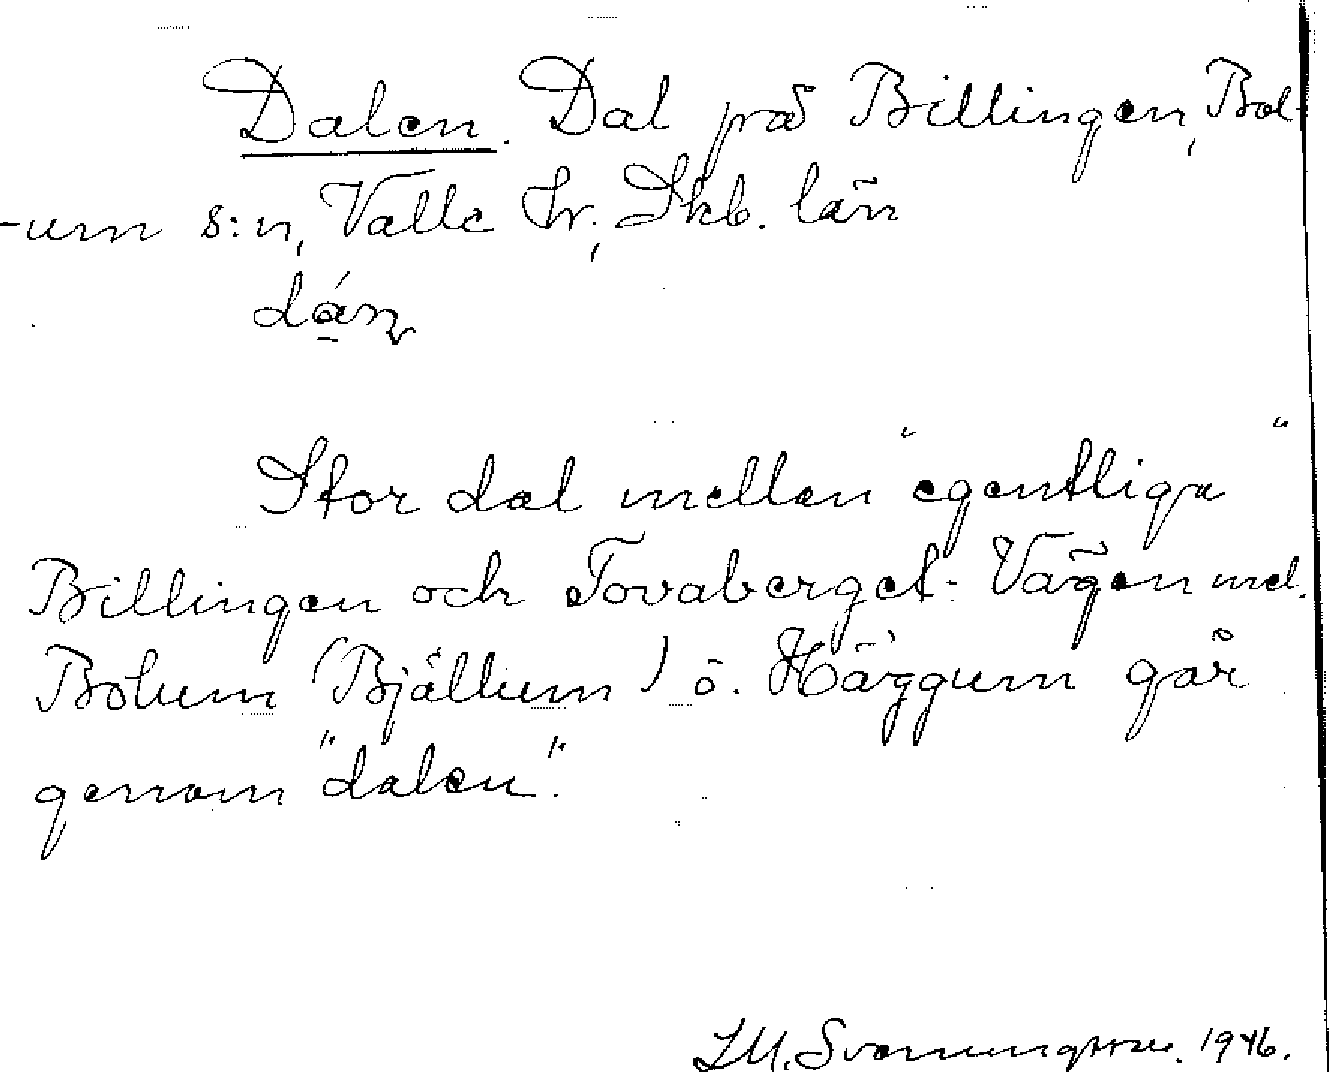 Dalen. Dal på Billingen, Bol-
-um s:n, Valle hr., Skb. län
dán
Stor dal mellan "egentliga"
Billingen och Tovaberget. Vägen mel.
Bolum (Bjällum) o. Häggum går
genom "dalen".
1946.